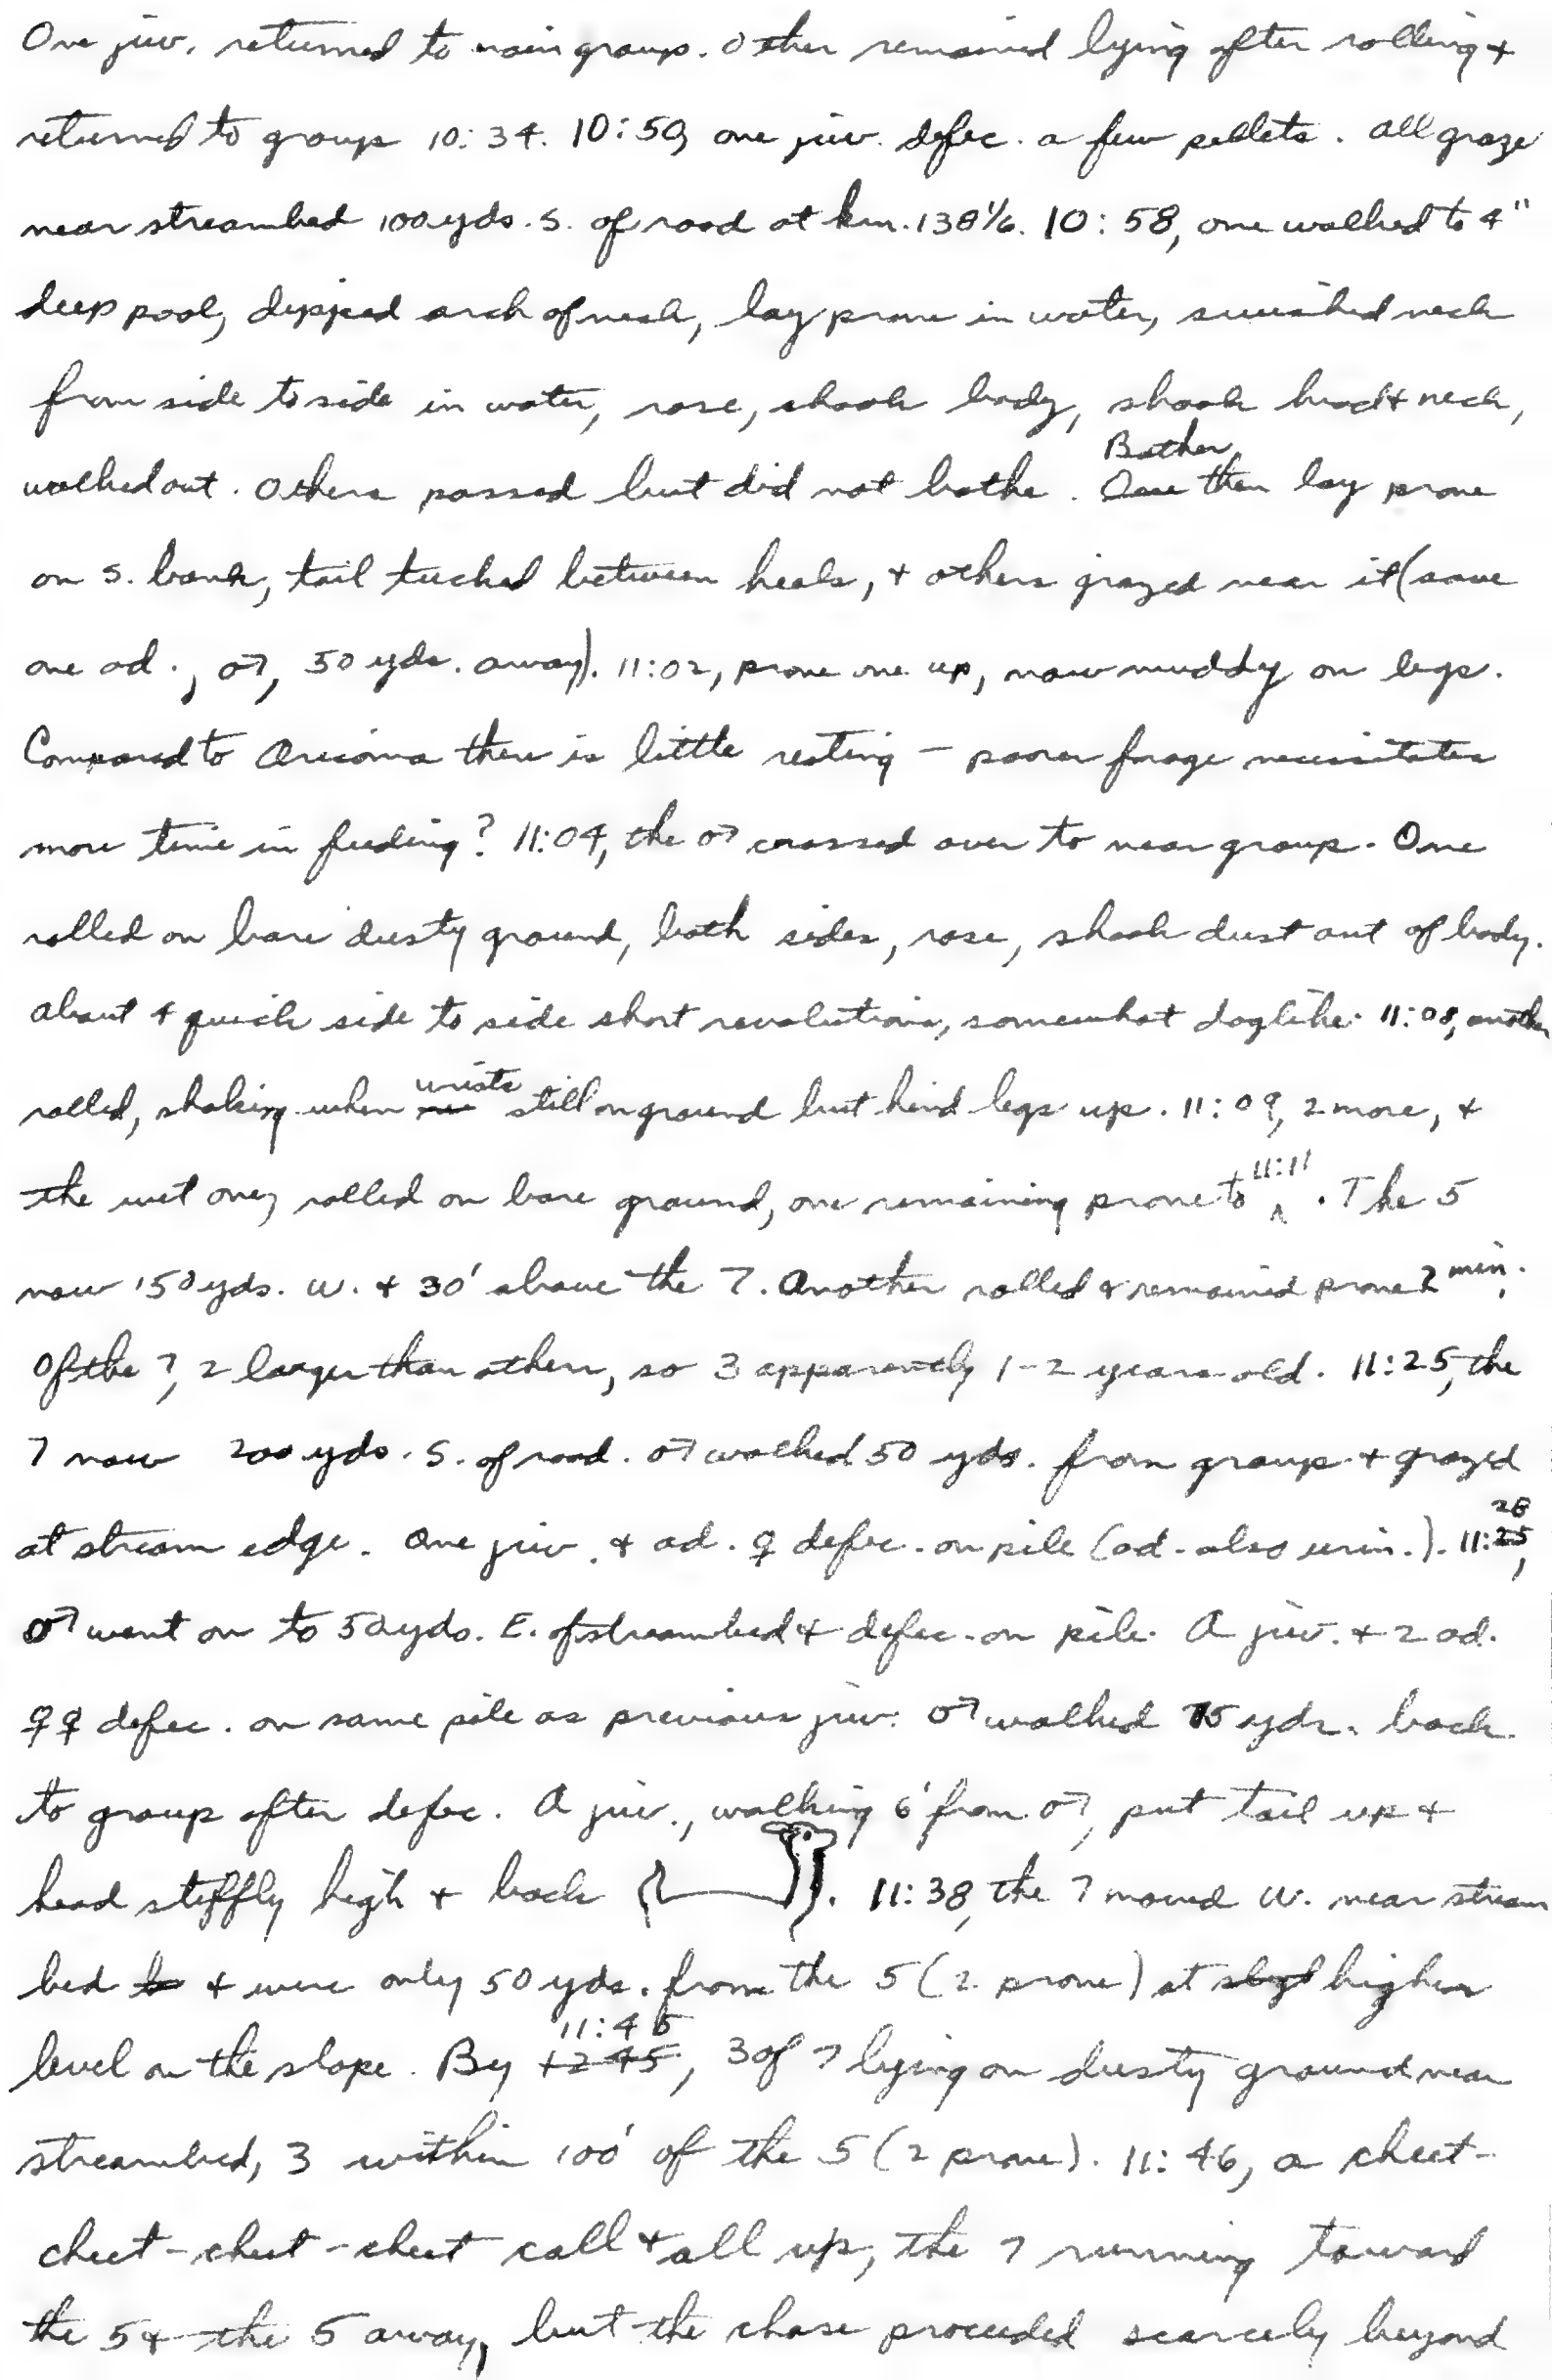 One juv. returned to main group. Other remained lying after rolling +
returned to group 10:34. 10:50, one juv. defec. a few pellets. All graze
near streambed 100 yds. S. of road at km. 138 1/6. 10:58, one walked to 4"
deep pool, dipped arch of neck, lay prone in water, swished neck
from side to side in water, rose, shook body, shook head + neck,
walked out. Others passed but did not bathe. Bather then lay prone
on S. bank, tail tucked between heels, + others grazed near it (save
one ad., ♂, 50 yds. away). 11:02, prone one up, now muddy on legs.
Compared to there is little resting – poorer forage necessitates
more time in feeding? 11:04, the ♂ crossed over to near group. One
rolled on bare dusty ground, both sides, rose, shook dust out of body.
about 4 quick side to side short revolutions, somewhat doglike. 11:08, another
rolled, shaking when wrists still on ground but hind legs up. 11:09, 2 more, +
the wet one, rolled on bare ground, one remaining prone to 11:11. The 5
now 150 yds. W. + 30' above the 7. Another rolled & remained prone 2 min.
Of the 7, 2 larger than others, so 3 apparently 1-2 years old. 11:25, the
7 now 200 yds. S. of road. ♂ walked 50 yds. from group + grazed
at stream edge. One juv. + ad. ♀ defec. on pile (ad. also urin.). 11:28,
♂ went on to 50 yds. E. of streambed + defec. on pile. A juv. + 2 ad.
♀♀ defec. on same pile as previous juv. ♂ walked 75 yds. back
to group after defec. A juv., walking 6' from ♂, put tail up +
head stiffly high + back. 11:38, the 7 moved W. near stream
bed + were only 50 yds. from the 5 (2 prone) at higher
level on the slope. By 11:45, 3 of 7 lying on dusty ground near
streambed, 3 within 100' of the 5 (2 prone). 11:46, a cheet-
cheet-cheet-cheet call + all up, the 7 running toward
the 5 + the 5 away, but the chase proceeded scarcely beyond